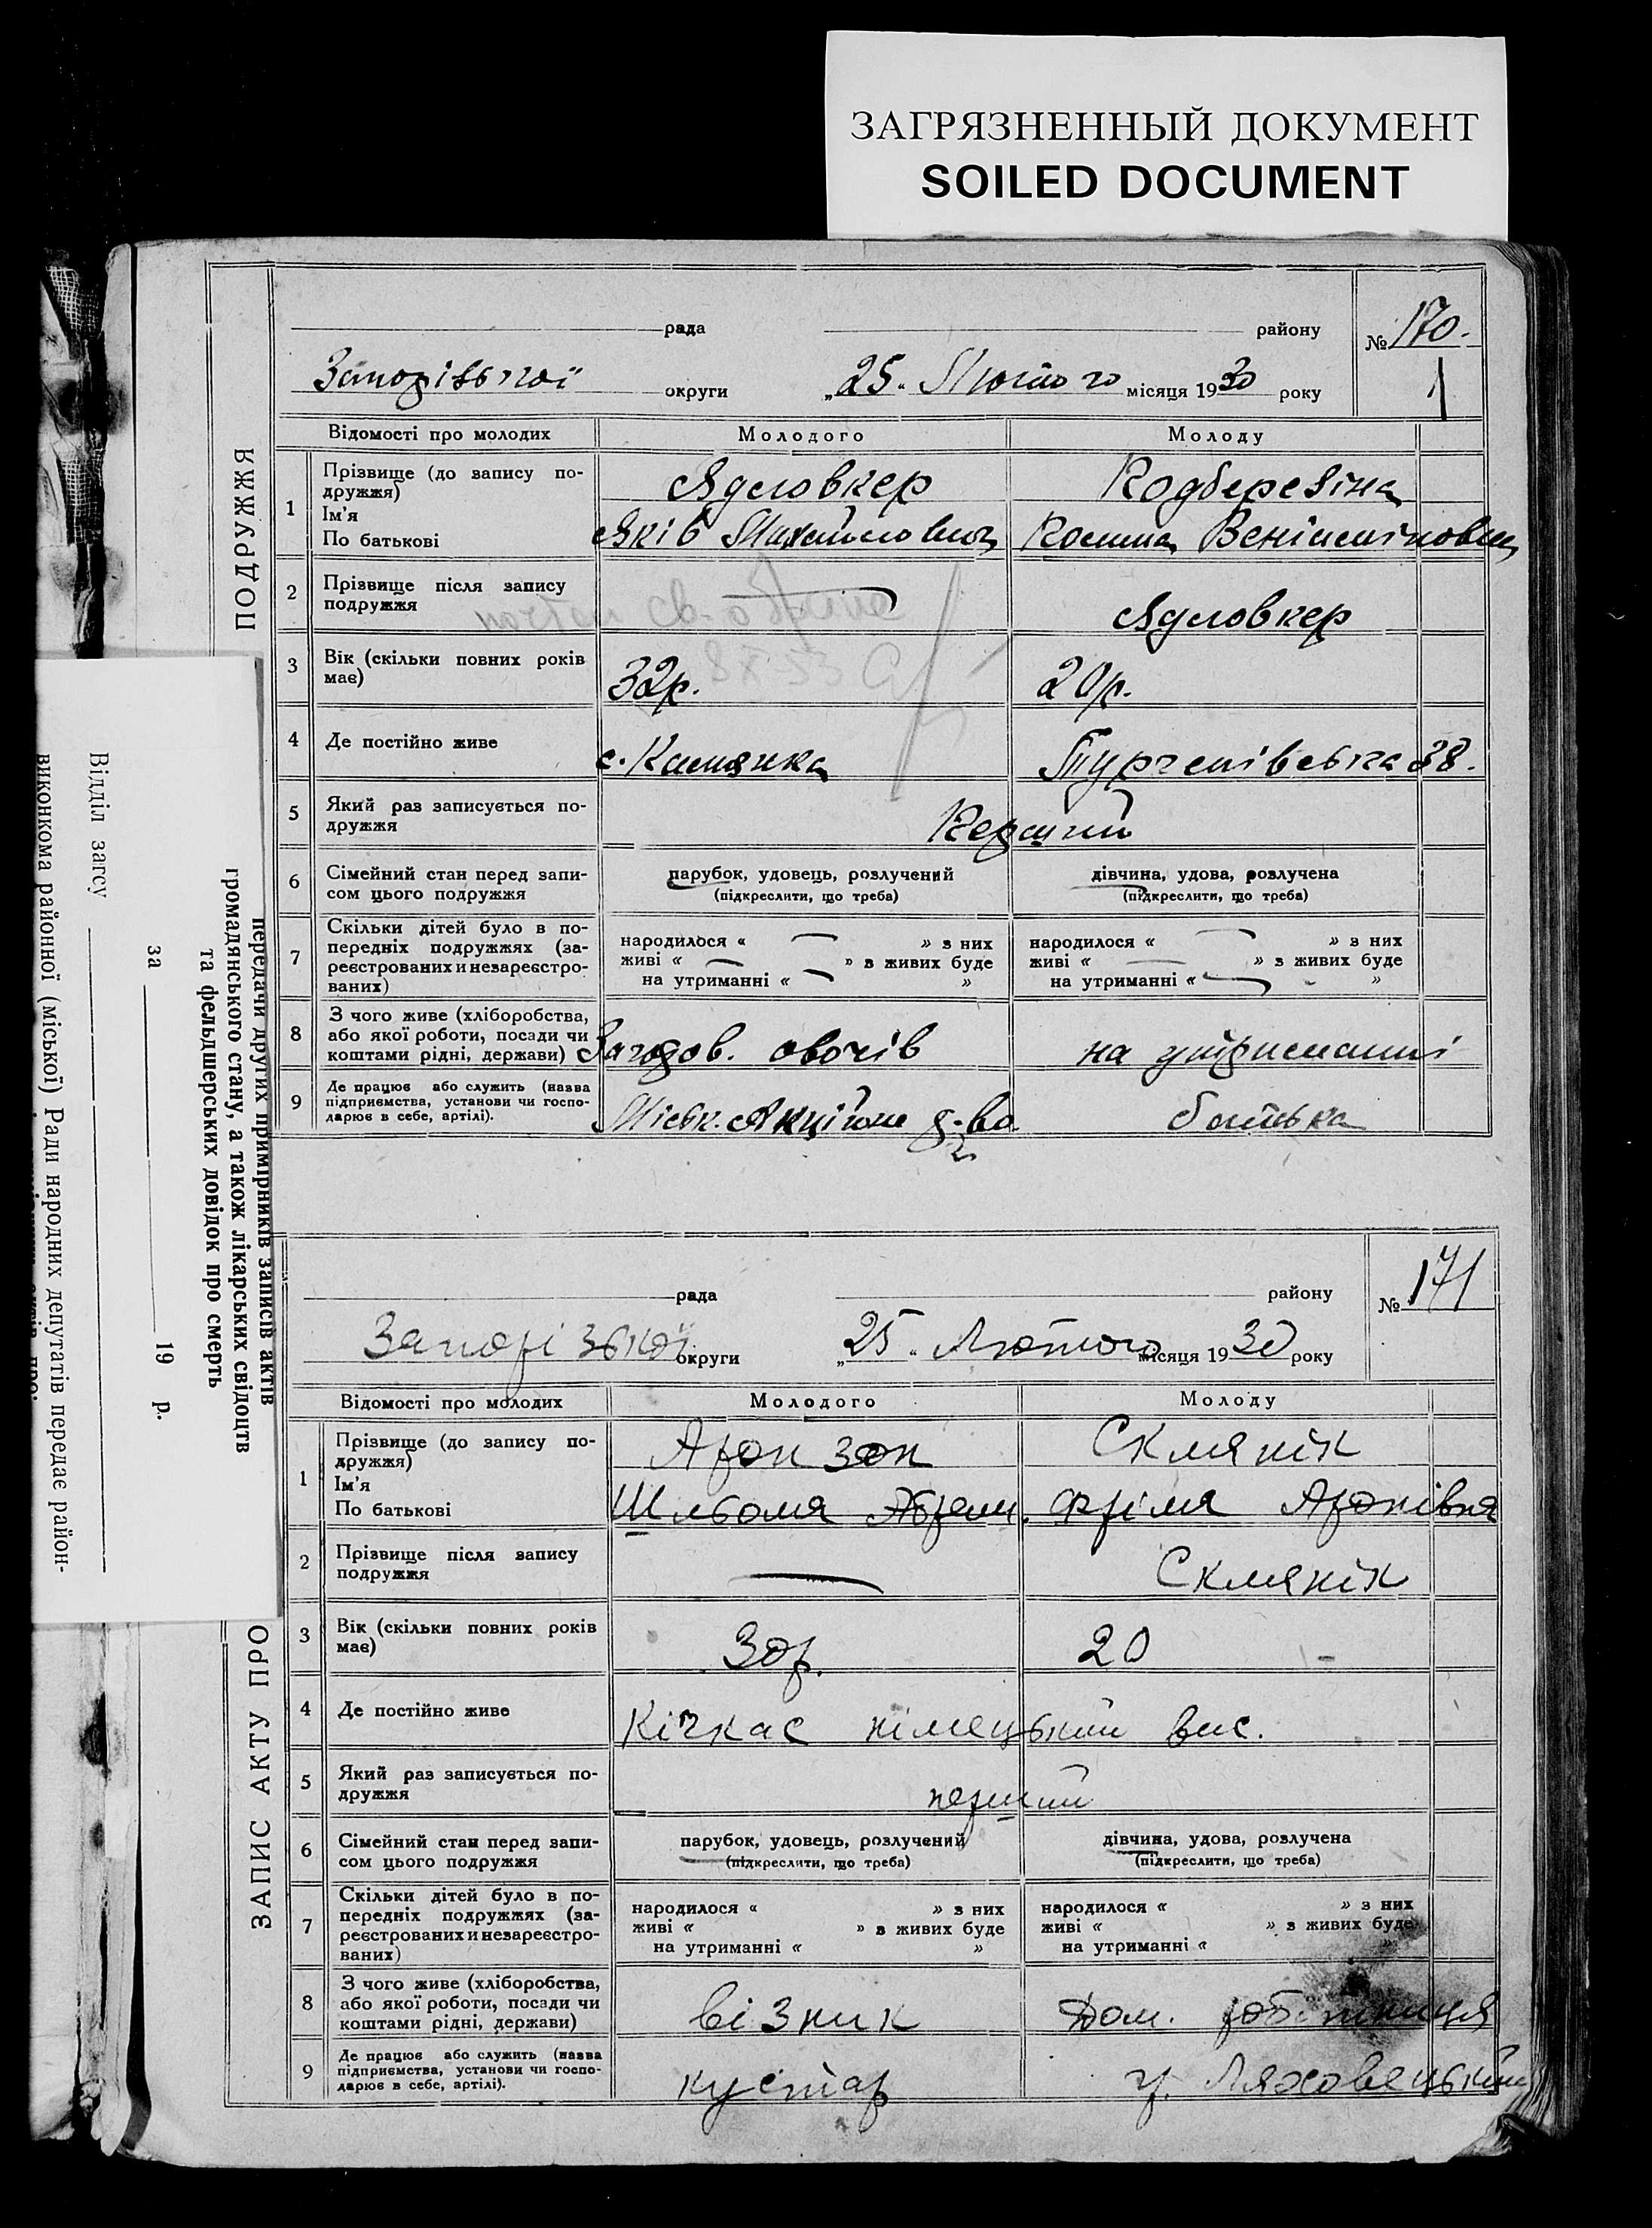 ЗАГРЯЗНЕННЫЙ ДОКУМЕНТ
SOILED DOCUMENT
ПОДРУЖЖЯ
рада району № 170.
Запорізької округи „25“ Лютого місяця 1930 року
Відомості про молодих Молодого Молоду
1 Прізвище (до запису по-
дружжя) Ядловкер Подберезіна
Ім'я
По батькові Яків Михайлович
2 Прізвище після запису
подружжя Ядловкер
3 Вік (скільки повних років
має) 32р. 20р.
4 Де постійно живе с. Камянка Тургенівська 38.
5 Який раз записується по-
дружжя Перший
6 Сімейний стан перед запи-
сом цього подружжя
парубок, удовець, розлучений дівчина, удова, розлучена
(підкреслити, що треба) (підкреслити, що треба)
7 Скільки дітей було в по-
передніх подружжях (за-
реєстрованих и незареєстро-
ваних)
народилося « » з них народилося « » з них
живі « » з живих буде живі « » з живих буде
на утриманні « » на утриманні « »
8 З чого живе (хліборобства,
або якої роботи, посади чи
коштами рідні, держави) Загодов. овочів на утриманні
9 Де працює або служить (назва
підприємства, установи чи госпо-
дарює в себе, артілі). Міськ. Акційне д-во батька
Відділ загсу
виконкома районної (міської) Ради народних депутатів передає район-
передачи других примірників записів актів
громадянського стану, а також лікарських свідоцтв
та фельдшерських довідок про смерть
за 19 р.
ЗАПИС АКТУ ПРО
рада району № 171
Запорізької округи „25“ Лютого місяця 1930 року
Відомості про молодих Молодого Молоду
1 Прізвище (до запису по-
дружжя) Аронзон Склянік
Ім'я
По батькові Шльома Абрам. Фріма Аронівна
2 Прізвище після запису
подружжя Склянік
3 Вік (скільки повних років
має) 30р. 20
4 Де постійно живе Кічкас німецький вис.
5 Який раз записується по-
дружжя перший
6 Сімейний стан перед запи-
сом цього подружжя
парубок, удовець, розлучений дівчина, удова, розлучена
(підкреслити, що треба) (підкреслити, що треба)
7 Скільки дітей було в по-
передніх подружжях (за-
реєстрованих и незареєстро-
ваних)
народилося « » з них народилося « » з них
живі « » з живих буде живі « » з живих буде
на утриманні « » на утриманні « »
8 З чого живе (хліборобства,
або якої роботи, посади чи
коштами рідні, держави) візник Дом. робітниця
9 Де працює або служить (назва
підприємства, установи чи госпо-
дарює в себе, артілі). кустар